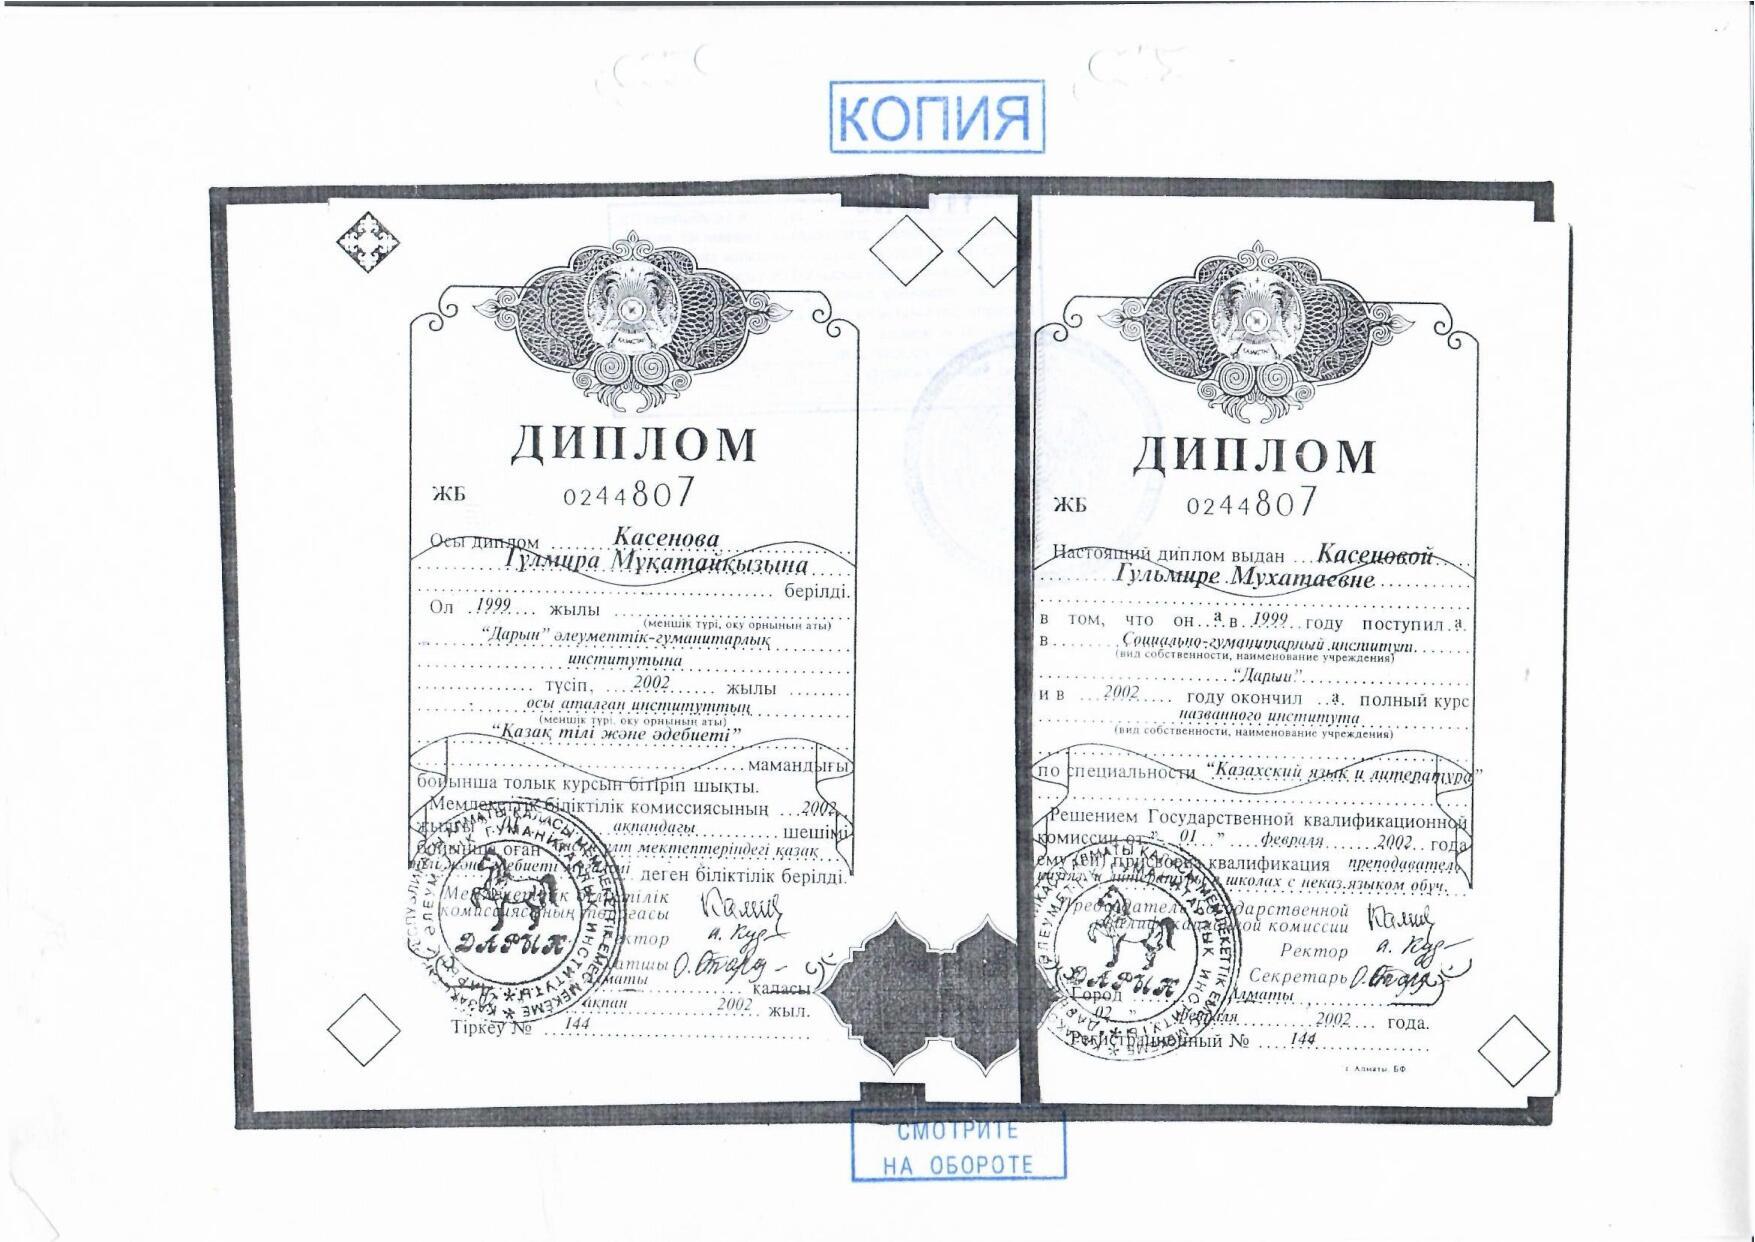 КОПИЯ
ДИПЛОМ
ЖБ 0244807
Осы диплом Касенова
Гүлмира Мұқатайқызына
берілді.
Ол 1999 жылы
(меншік түрі, оқу орнының аты)
“Дарын” әлеуметтік-гуманитарлық
институтына
түсіп, 2002 жылы
осы аталған институттың
(меншік түрі, оқу орнының аты)
“Қазақ тілі және әдебиеті”
мамандығы
бойынша толық курсын бітіріп шықты.
Мемлекеттік біліктілік комиссиясының 2002
жылғы “ 01 ” ақпандағы шешімі
бойынша оған мектептеріндегі қазақ
тілі және әдебиеті деген біліктілік берілді.
Мемлекеттік біліктілік
комиссиясының төрағасы
Алматы қаласы
ақпан 2002 жыл.
Тіркеу № 144
ДАРЫН
ДИПЛОМ
ЖБ 0244807
Настоящий диплом выдан Касеновой
Гульмире Мухатаевне
в том, что он а в 1999 году поступил а
в Социально-гуманитарный институт
(вид собственности, наименование учреждения)
“Дарын”
и в 2002 году окончил а полный курс
названного института
(вид собственности, наименование учреждения)
по специальности “Казахский язык и литература”
Решением Государственной квалификационной
комиссии от “ 01 ” февраля 2002 года
ему (ей) присвоена квалификация преподаватель
и литературы в школах с неказ.языком обуч.
Председатель Государственной
квалификационной комиссии
Ректор
Секретарь
Город Алматы
02 ” февраля 2002 года.
Регистрационный № 144
г. Алматы. БФ
ДАРЫН
СМОТРИТЕ
НА ОБОРОТЕ